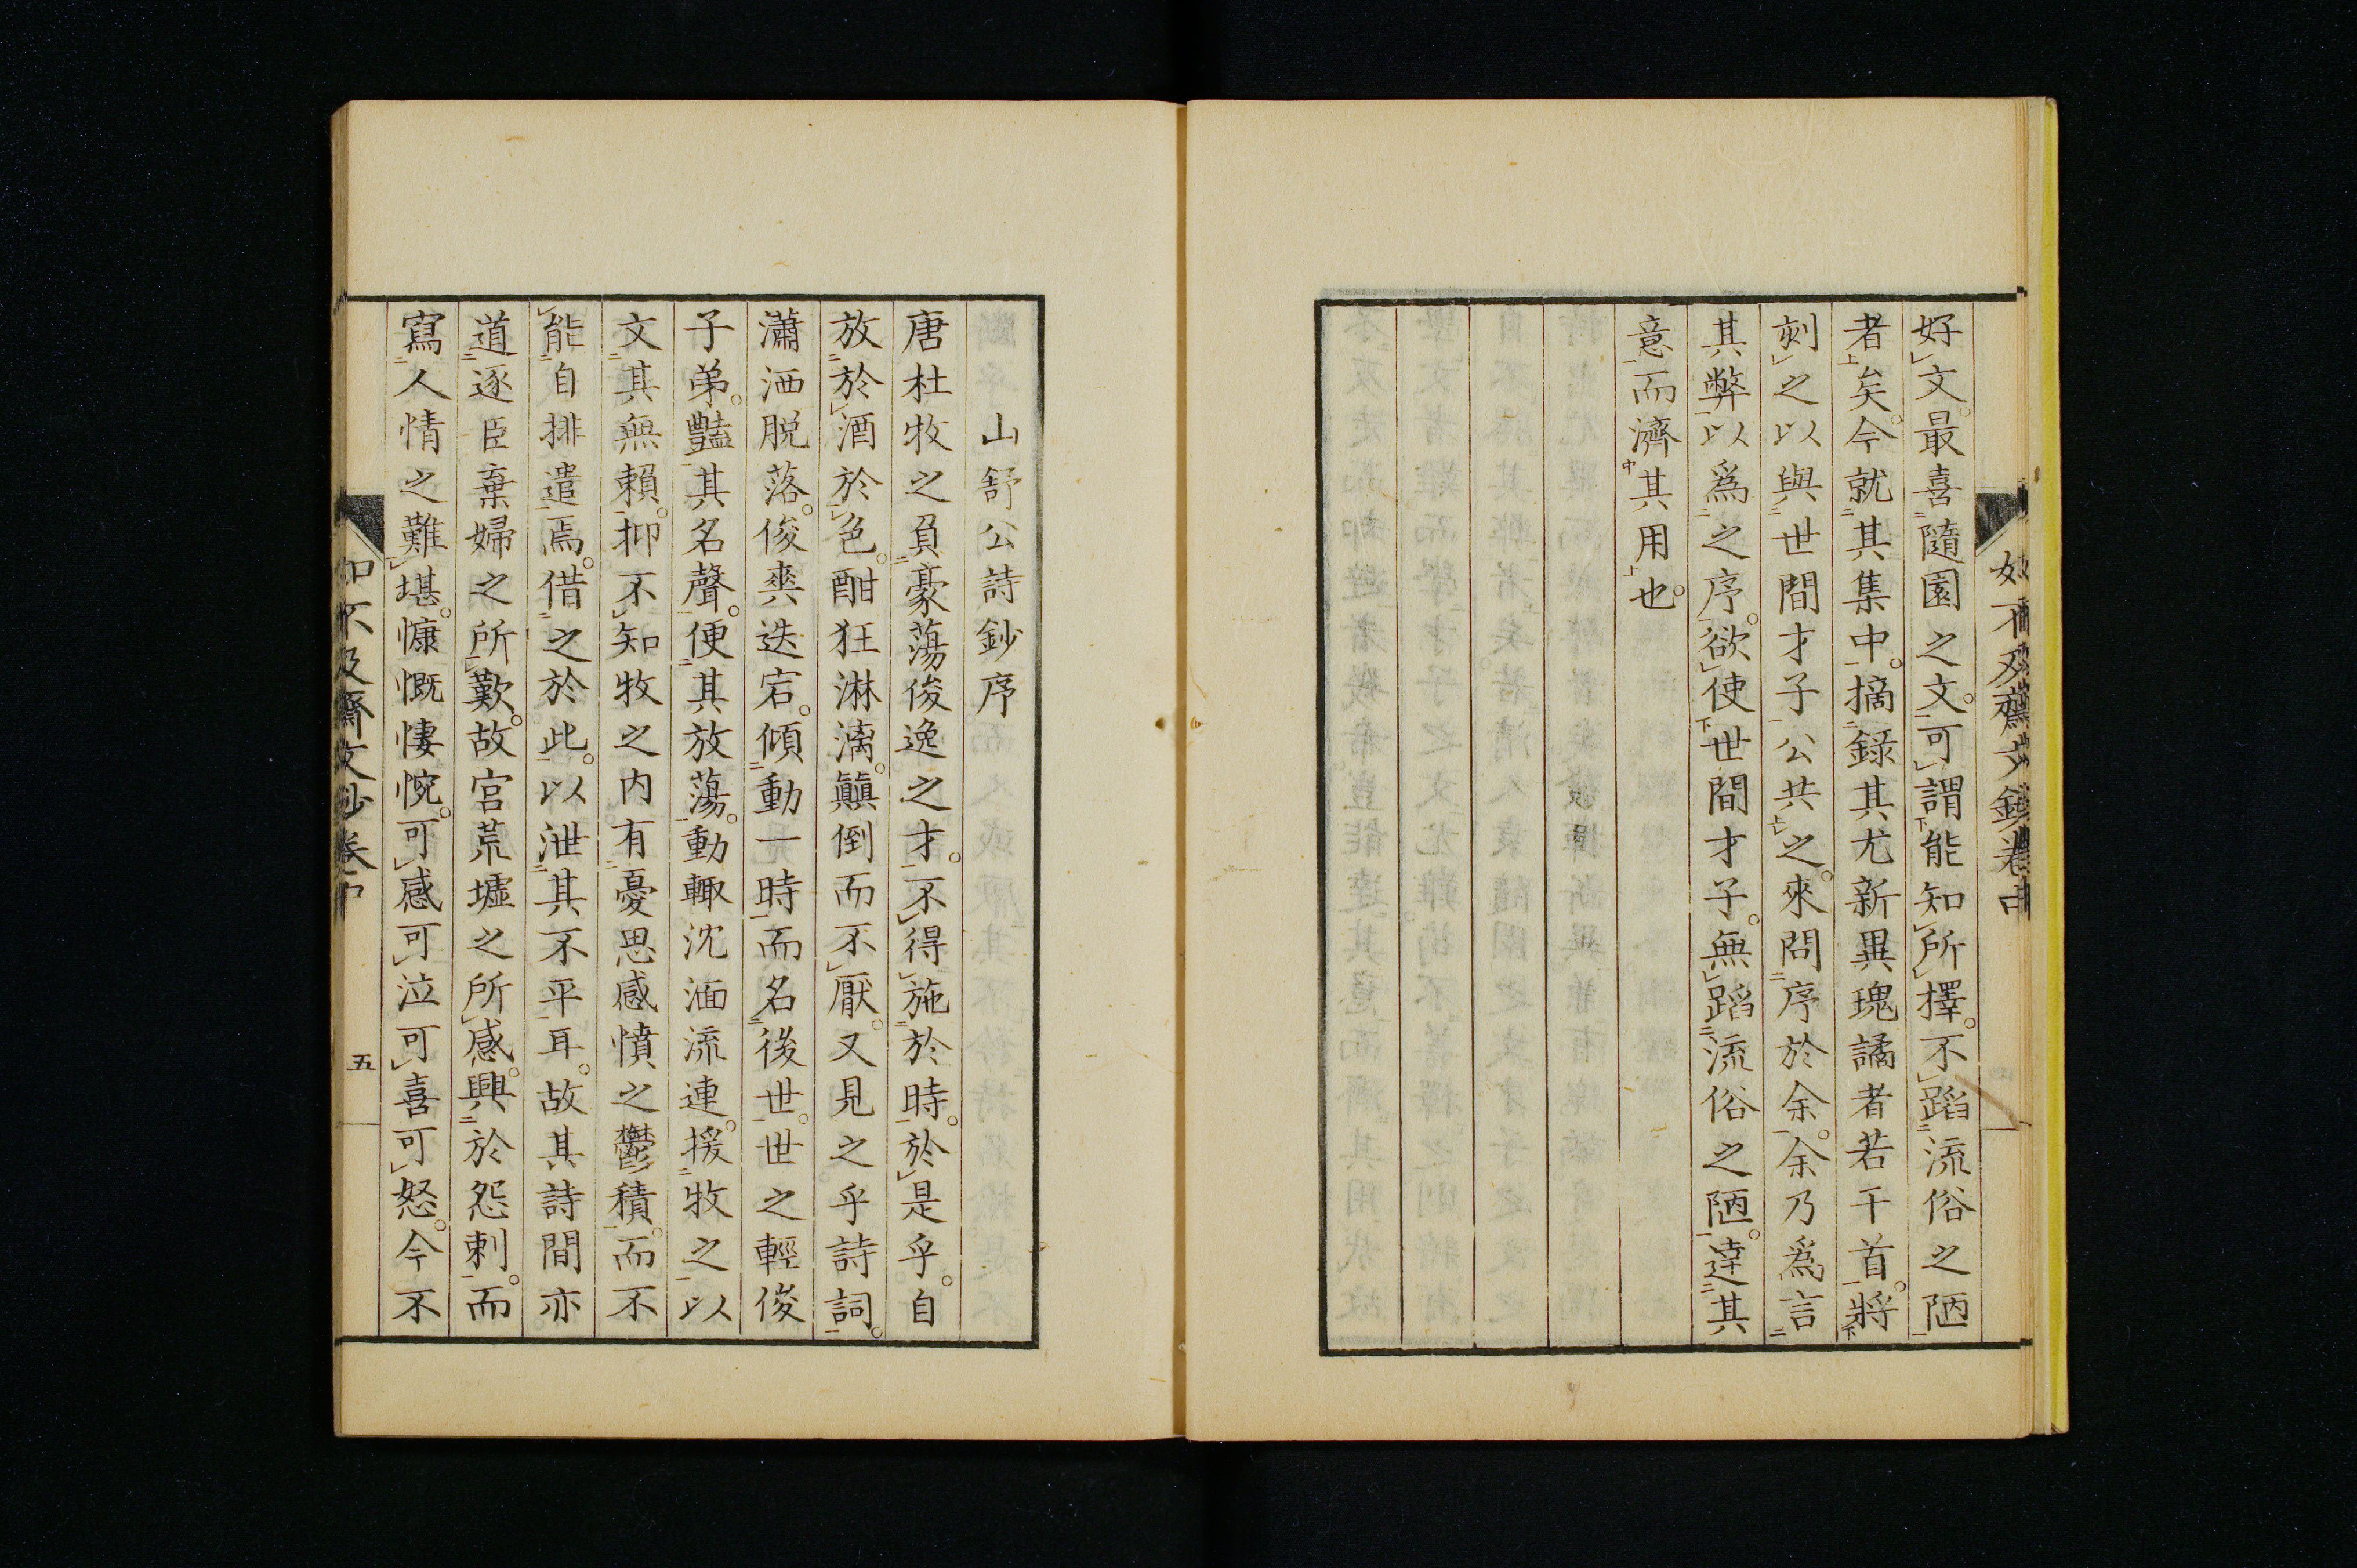 如不及齋文鈔卷中
好文。最喜隨園之文。可謂能知所擇。不蹈流俗之陋
者矣。今就其集中。摘錄其尤新異瑰譎者若干首。將
刻之以與世間才子公共之。來問序於余。余乃爲言
其弊以爲之序。欲使世間才子。無蹈流俗之陋。達其
意而濟其用也。
山舒公詩鈔序
唐杜牧之負豪蕩俊逸之才。不得施於時。於是乎。自
放於酒於色。酣狂淋漓。顚倒而不厭。又見之乎詩詞。
瀟洒脱落。俊爽迭宕。傾動一時而名後世。世之輕俊
子弟。豔其名聲。便其放蕩。動輙沈湎流連。援牧之以
文其無賴。抑不知牧之内有憂思感憤之鬱積。而不
能自排遣焉。借之於此。以泄其不平耳。故其詩間亦
道逐臣棄婦之所歎。故宮荒墟之所感。興於怨刺。而
寫人情之難堪。慷慨悽惋。可感可泣可喜可怒。今不
如不及齋文鈔卷中
五